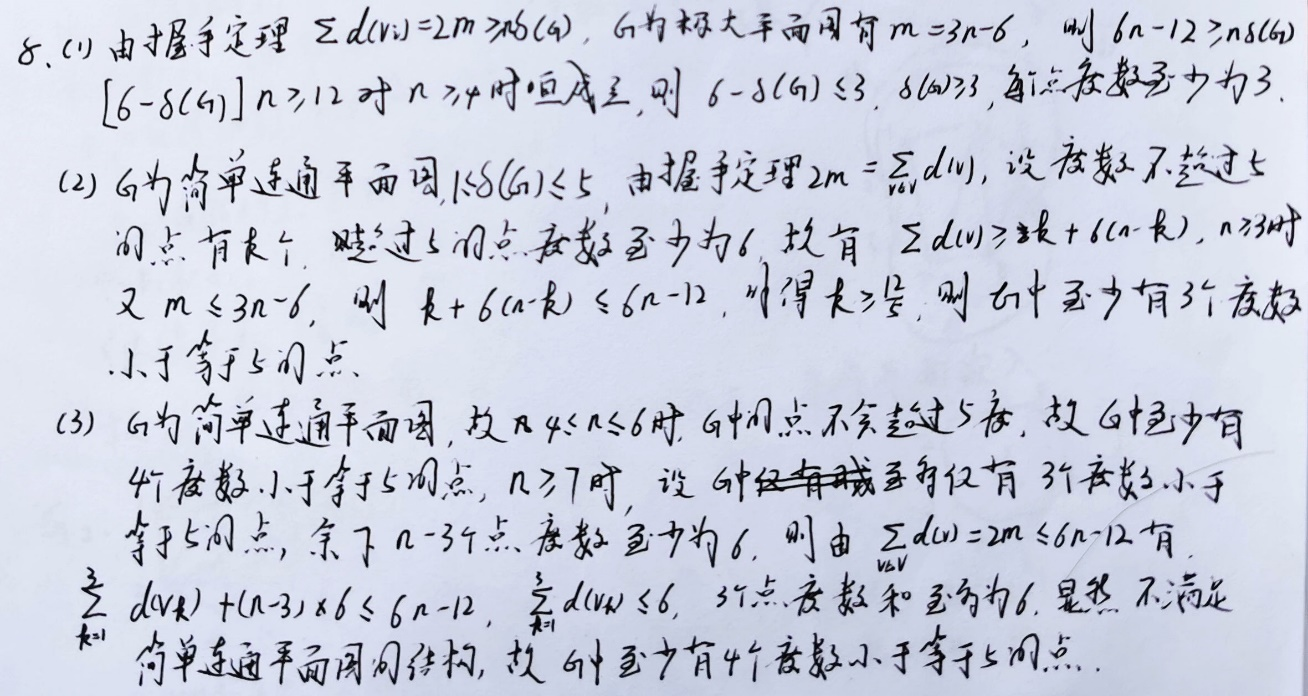 8、(1) 由握手定理 Σd(vi)=2m≥nδ(G), G为极大平面图有 m=3n-6, 则 6n-12≥nδ(G)
[6-δ(G)]n≥12 对 n≥4时恒成立,则 6-δ(G)≤3, δ(G)≥3,每个点度数至少为3.
(2) G为简单连通平面图,1≤δ(G)≤5, 由握手定理2m=Σ_{v∈V}d(v), 设度数不超过5
的点有k个, 超过5的点度数至少为6,故有 Σd(v)≥k+6(n-k), n≥3时
又 m≤3n-6, 则 k+6(n-k)≤6n-12, 得 k≥12/5, 则G中至少有3个度数
小于等于5的点.
(3) G为简单连通平面图,故 4≤n≤6时,G中的点不会超过5度,故G中至少有
4个度数小于等于5的点, n≥7时,设G中至多仅有3个度数小于
等于5的点,余下n-3个点度数至少为6, 则由 Σ_{v∈V}d(v)=2m≤6n-12有
Σ_{k=1}^{3} d(vk)+(n-3)×6≤6n-12, Σ_{k=1}^{3} d(vk)≤6, 3个点度数和至多为6,显然不满足
简单连通平面图的结构,故G中至少有4个度数小于等于5的点.